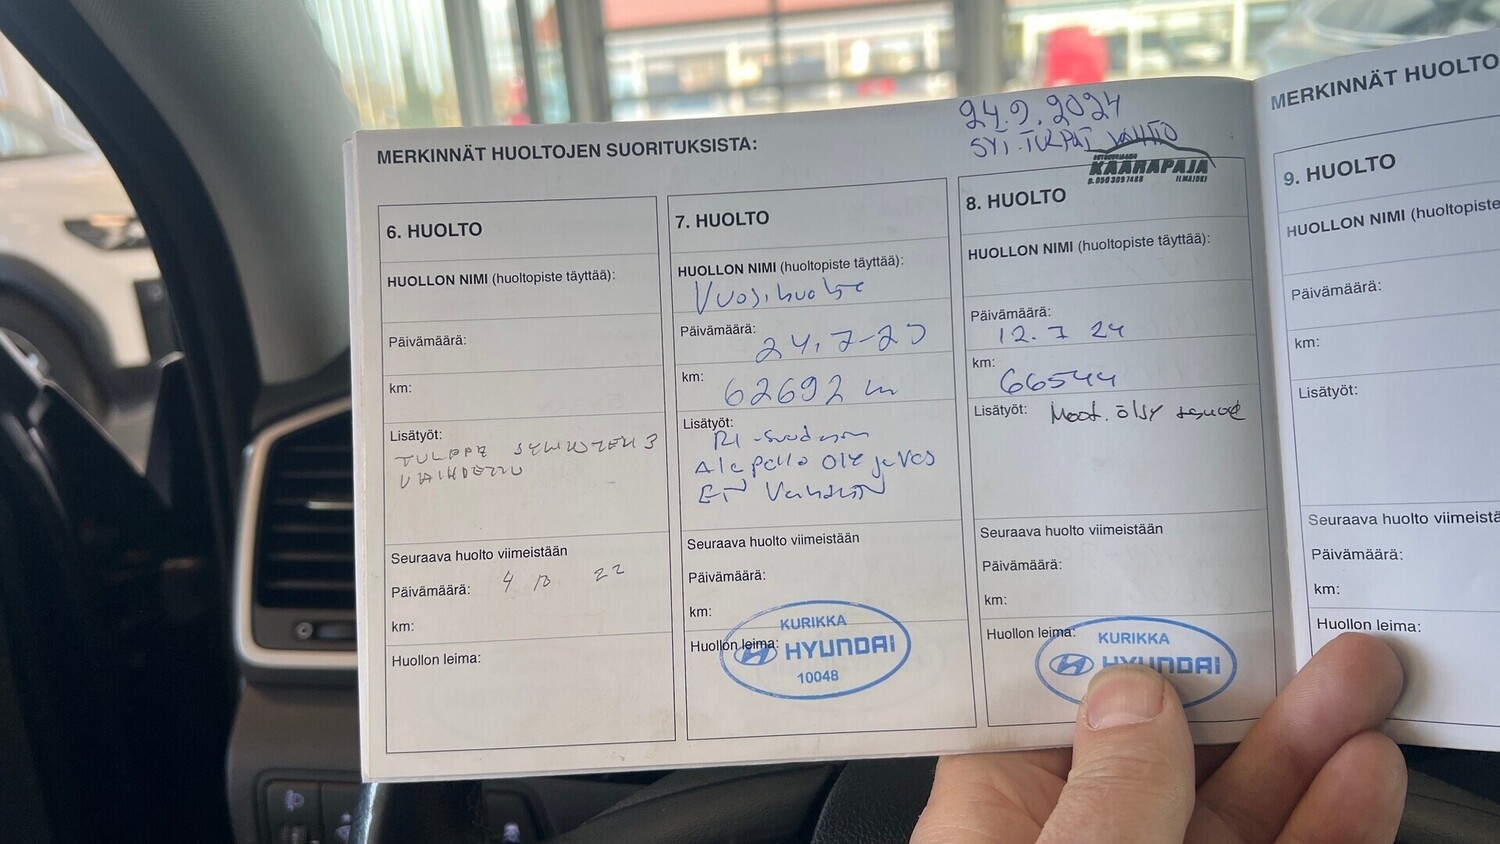 MERKINNÄT HUOLTOJEN SUORITUKSISTA:
24.9.2024
SYT.TULPAT VAIHTO
KAARAPAJA
ILMAJOKI
6. HUOLTO
HUOLLON NIMI (huoltopiste täyttää):
Päivämäärä:
km:
Lisätyöt:
TULPPA SYLINTERI 3
VAIHDETTU
Seuraava huolto viimeistään
Päivämäärä: 4 10 22
km:
Huollon leima:
7. HUOLTO
HUOLLON NIMI (huoltopiste täyttää):
Vuosihuolto
Päivämäärä:
24.7-23
km: 62692
Lisätyöt:
Alapello
Seuraava huolto viimeistään
Päivämäärä:
km:
Huollon leima:
KURIKKA
HYUNDAI
10048
8. HUOLTO
HUOLLON NIMI (huoltopiste täyttää):
Päivämäärä:
12.7 24
km:
66544
Lisätyöt: Moot. öljy
Seuraava huolto viimeistään
Päivämäärä:
km:
Huollon leima:
KURIKKA
HYUNDAI
MERKINNÄT HUOLTO
9. HUOLTO
HUOLLON NIMI (huoltopiste
Päivämäärä:
km:
Lisätyöt:
Seuraava huolto viimeistä
Päivämäärä:
km:
Huollon leima: